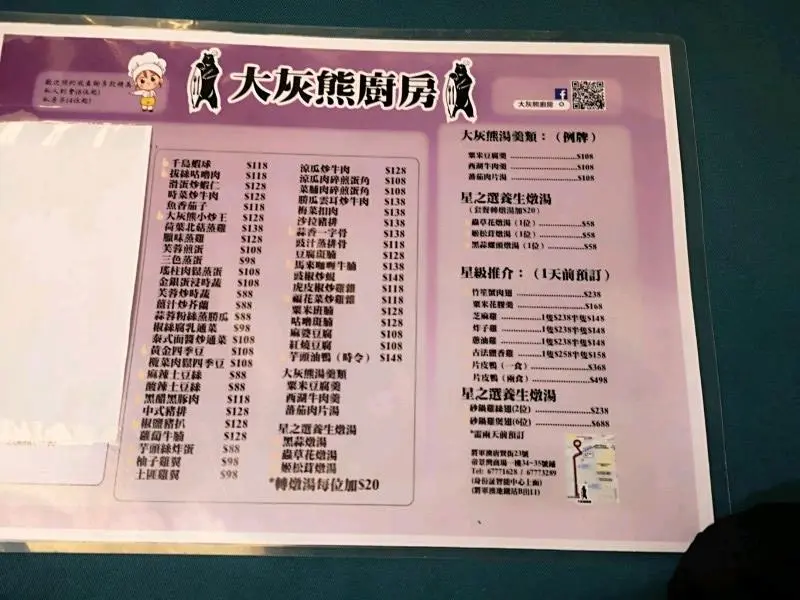 歡迎預約或查詢多款精美
私人到會(8位起)
私房菜(4位起)
大灰熊廚房
大灰熊廚房
千島蝦球 $118
拔絲咕嚕肉 $118
滑蛋炒蝦仁 $128
時菜炒牛肉 $128
魚香茄子 $118
大灰熊小炒王 $128
荷葉北菇蒸雞 $138
臘味蒸雞 $128
芙蓉煎蛋 $108
三色蒸蛋 $98
瑤柱肉鬆蒸蛋 $108
金銀蛋浸時蔬 $108
芙蓉炒時蔬 $88
薑汁炒芥蘭 $88
蒜蓉粉絲蒸勝瓜 $88
椒絲腐乳通菜 $98
泰式面醬炒通菜 $108
黃金四季豆 $108
欖菜肉鬆四季豆 $108
麻辣土豆絲 $88
酸辣土豆絲 $88
黑醋黑豚肉 $118
中式豬排 $128
椒鹽豬扒 $128
蘿蔔牛腩 $128
芋頭絲炸蛋 $88
柚子雞翼 $98
土匪雞翼 $98
涼瓜炒牛肉 $128
涼瓜肉碎煎蛋角 $108
菜脯肉碎煎蛋角 $108
勝瓜雲耳炒牛肉 $138
梅菜扣肉 $138
沙拉豬排 $138
蒜香一字骨 $138
豉汁蒸排骨 $118
豆腐斑腩 $128
馬來咖喱牛腩 $138
豉椒炒蜆 $148
虎皮椒炒雞雜 $118
福花菜炒雞雜 $118
粟米斑腩 $128
咕嚕斑腩 $128
麻婆豆腐 $108
紅燒豆腐 $108
芋頭油鴨（時令） $148
大灰熊湯羹類
粟米豆腐羹
西湖牛肉羹
蕃茄肉片湯
星之選養生燉湯
黑蒜燉湯
蟲草花燉湯
姬松茸燉湯
*轉燉湯每位加$20
大灰熊湯羹類：（例牌）
粟米豆腐羹 $108
西湖牛肉羹 $108
蕃茄肉片湯 $108
星之選養生燉湯
（套餐轉燉湯加$20）
蟲草花燉湯（1位） $58
姬松茸燉湯（1位） $58
黑蒜螺頭燉湯（1位） $58
星級推介：（1天前預訂）
竹笙蟹肉翅 $238
粟米花膠羹 $168
芝麻雞 1隻$238半隻$148
炸子雞 1隻$238半隻$148
蔥油雞 1隻$238半隻$148
古法鹽香雞 1隻$258半隻$158
片皮鴨（一食） $368
片皮鴨（兩食） $498
星之選養生燉湯
砂鍋雞絲翅(2位) $238
砂鍋雞煲翅(6位) $688
*需兩天前預訂
將軍澳唐賢街23號
帝景灣商場一樓34-35號鋪
Tel: 67771628 / 67773289
(身份証智能中心上面)
(將軍澳地鐵站B出口)